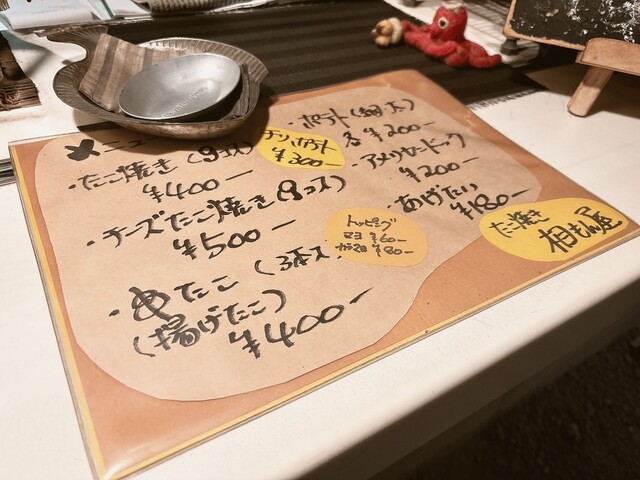 メニュー
・たこ焼き(9コ入)
¥400ー
・チーズたこ焼き(8コス)
¥500ー
(3本入
(揚げたこ)
¥400ー
¥300ー
・ポテト(細、太)
各¥200ー
・アメリカンドック
¥200ー
・あげたい
¥180ー
トッピング
マヨ ¥60ー
¥80ー
たこ焼き